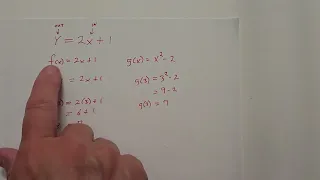 OUT IN
Y = 2x + 1
f(x) = 2x + 1
= 2x + 1
= 2(3) + 1
= 6 + 1
g(x) = x² - 2
g(3) = 3² - 2
= 9 - 2
g(3) = 7